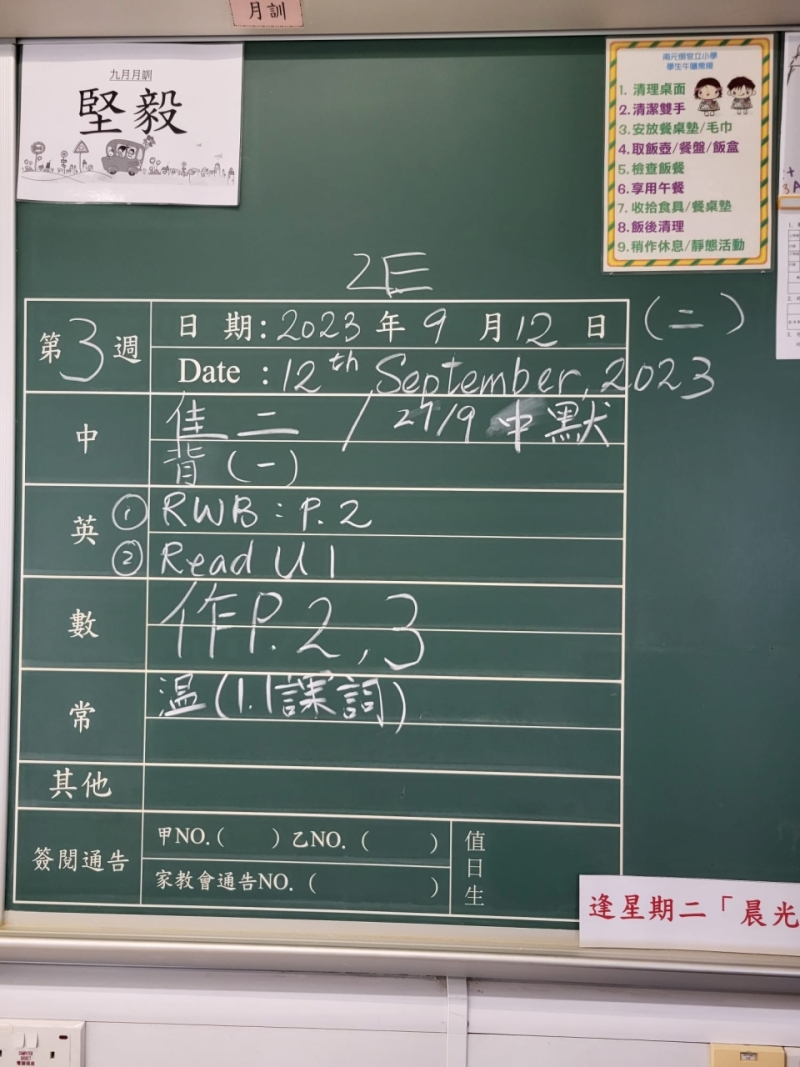 月訓
九月月訓
堅毅
學生午膳常規
1. 清理桌面
2. 清潔雙手
3. 安放餐桌墊/毛巾
4. 取飯壺/餐盤/飯盒
5. 檢查飯餐
6. 享用午餐
7. 收拾食具/餐桌墊
8. 飯後清理
9. 稍作休息/靜態活動
2E
第3週
日期:2023年9月12日(二)
Date :12th September, 2023
中
佳二 / 27/9 中默
背(一)
英
① RWB : P. 2
② Read U 1
數
作P. 2, 3
常
溫(1.1課詞)
其他
簽閱通告
甲NO.( ) 乙NO. ( )
家教會通告NO. ( )
值日生
逢星期二「晨光